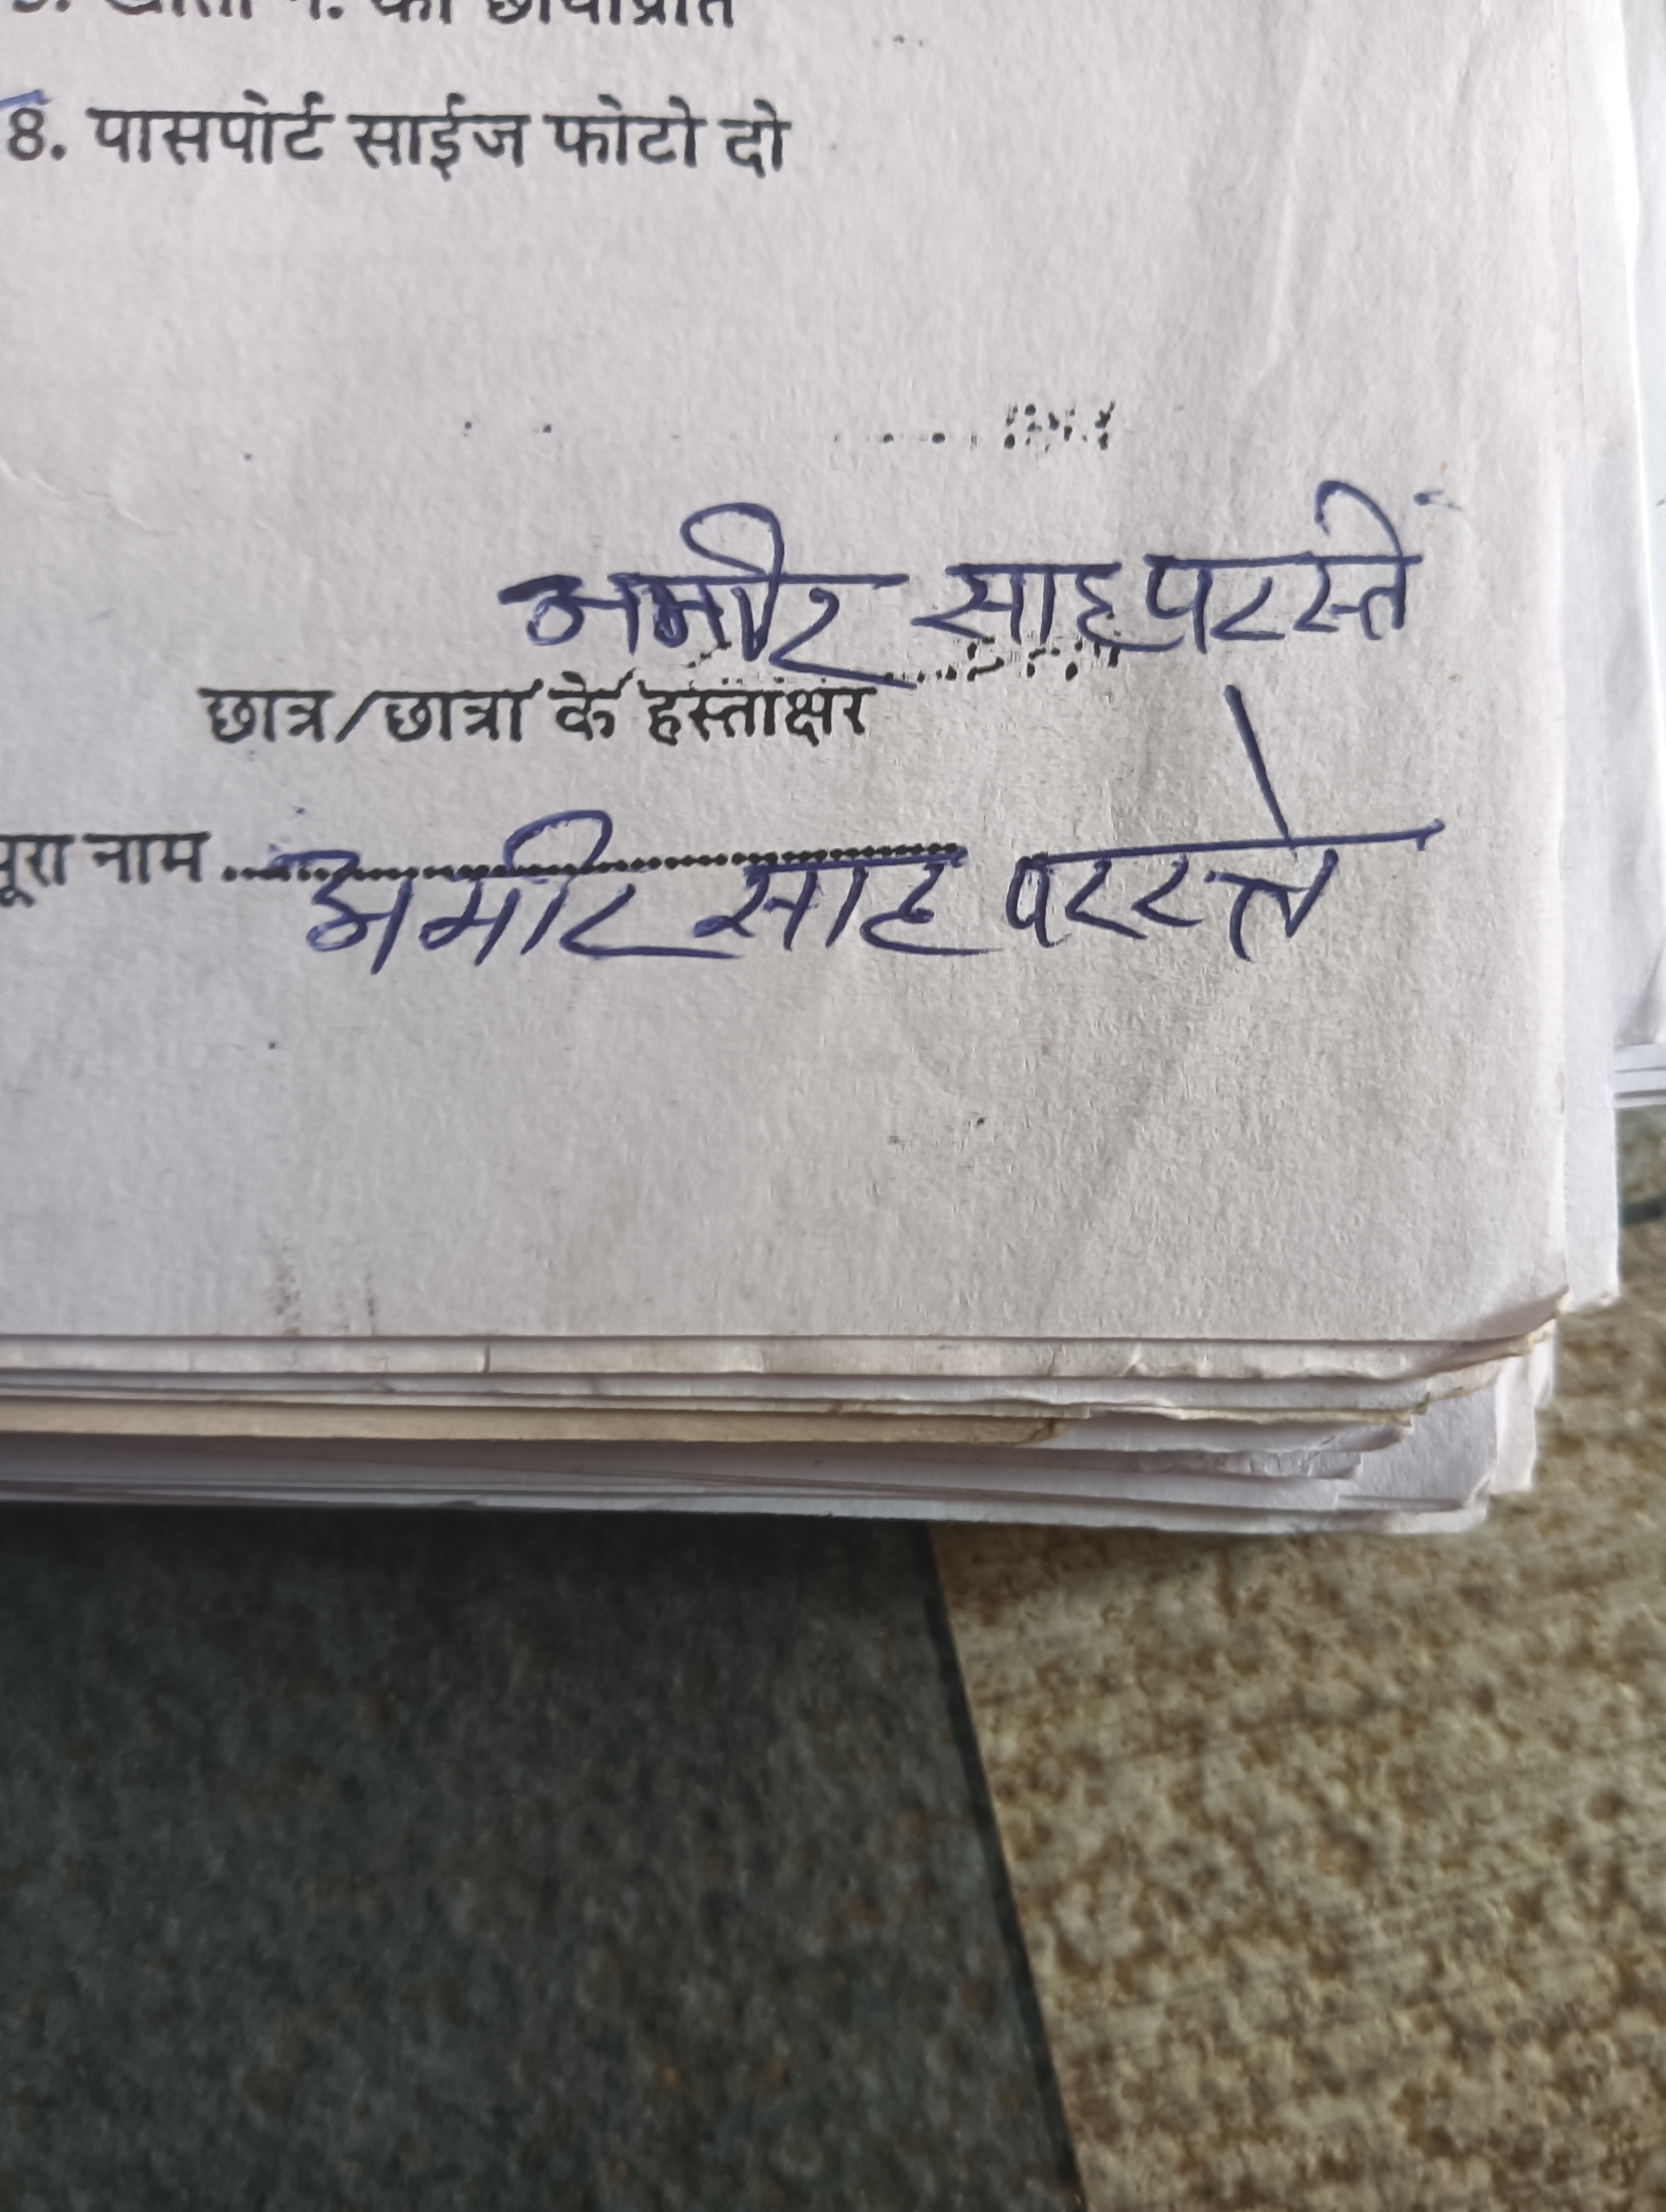 8. पासपोर्ट साईज फोटो दो
अमीर साह परस्ते
छात्र/छात्रा के हस्ताक्षर
पूरा नाम ........ अमीर साह परस्ते